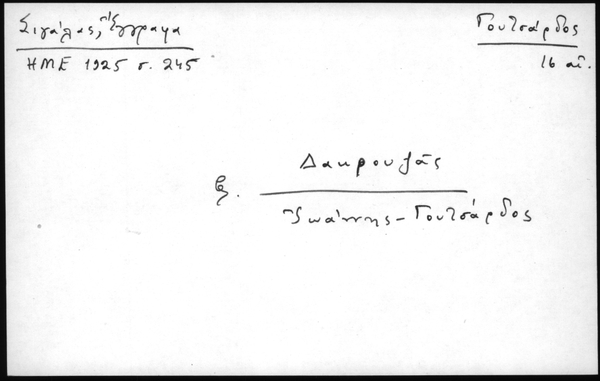 Σιγάλας, Ἔγγραφα
ΗΜΕ 1925 σ. 245
Γουτσάρδος
16 αἰ.
Δακρουζᾶς
β.
Ἰωάννης - Γουτσάρδος